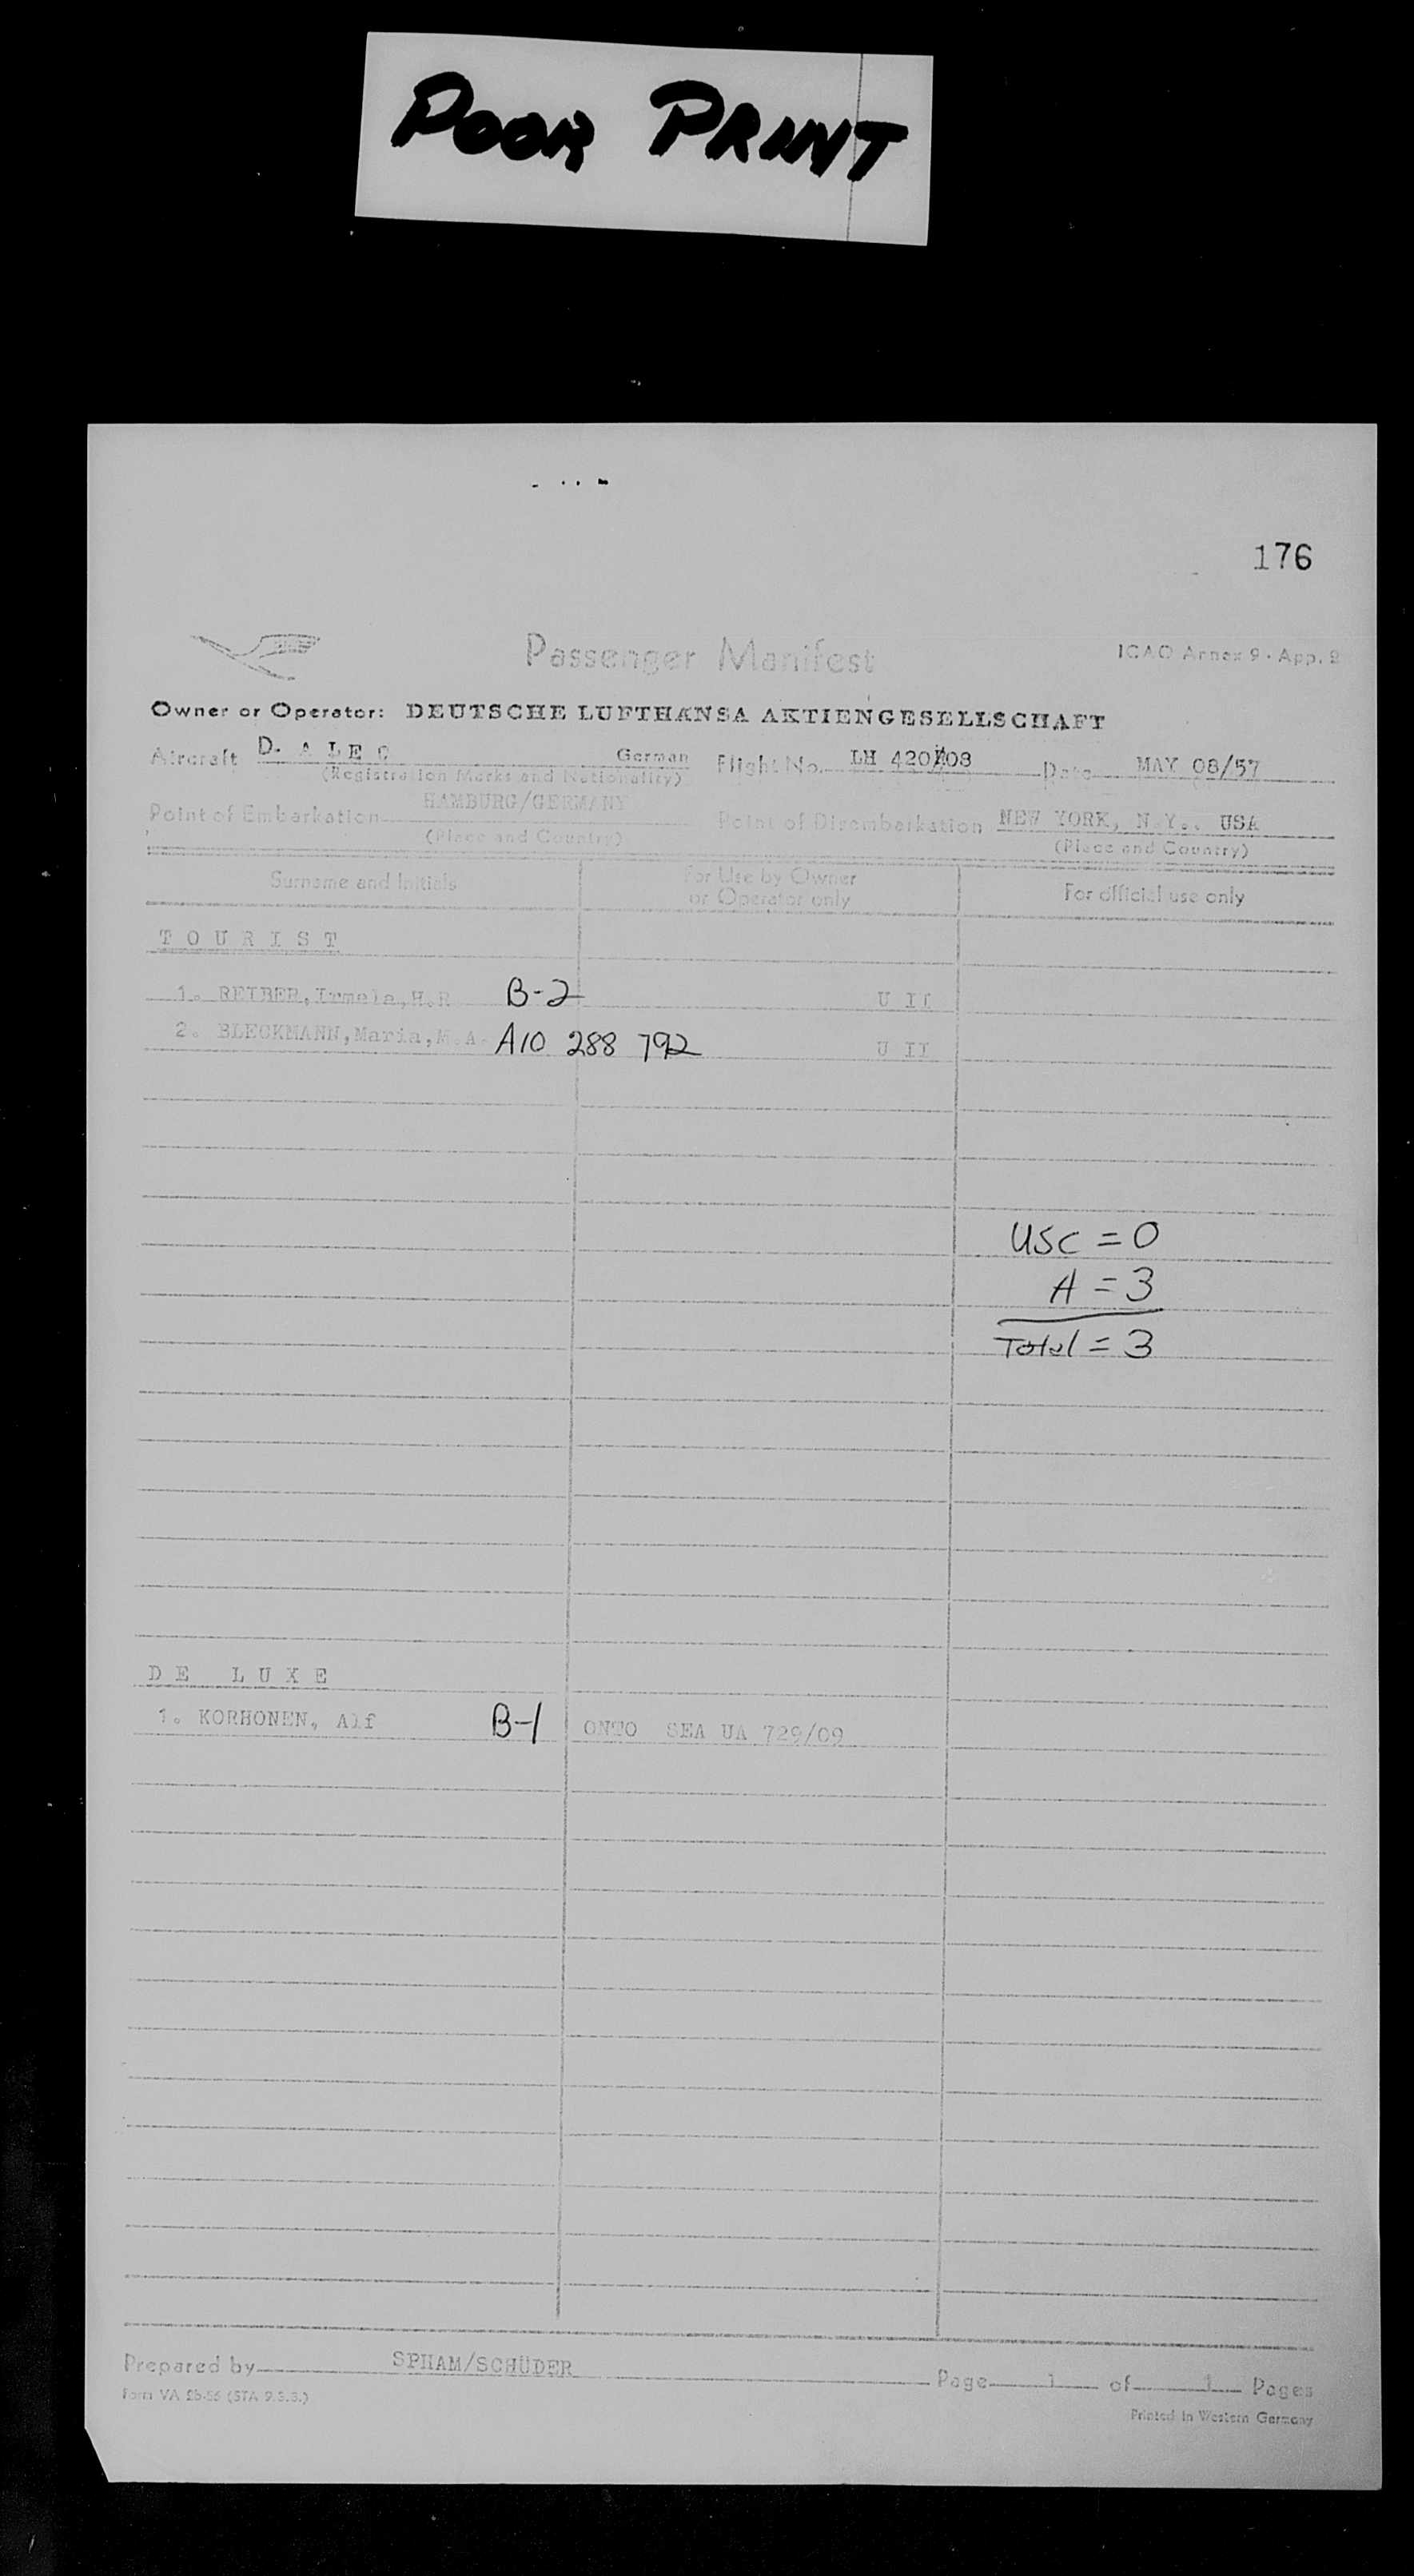 POOR PRINT
176
Passenger Manifest
ICAO Annex 9 - App. 2
Owner or Operator: DEUTSCHE LUFTHANSA AKTIENGESELLSCHAFT
Aircraft D. A L E C German Flight No. LH 420/08 Date MAY 08/57
(Registration Marks and Nationality)
Point of Embarkation HAMBURG/GERMANY Point of Disembarkation NEW YORK, N.Y., USA
(Place and Country) (Place and Country)
Surname and Initials For Use by Owner or Operator only For official use only
T O U R I S T
1. REIBER, Irmela, H.R B-2 U II
2. BLECKMANN, Maria, M.A. A10 288 792 U II
USC = 0
A = 3
Total = 3
D E L U X E
1. KORHONEN, Alf B-1 ONTO SEA UA 729/09
Prepared by SPHAM/SCHÜDER Page 1 of 1 Pages
Form VA 2b-56 (STA 9.3.3.)
Printed in Western Germany